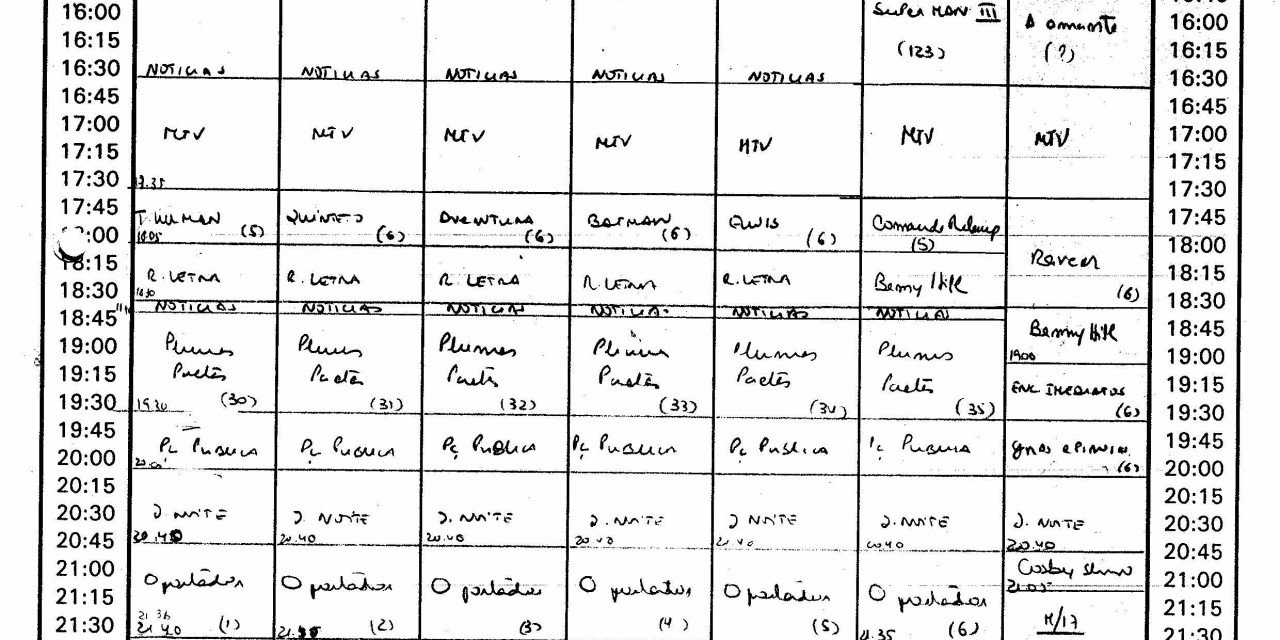 16:00 Super MAN III A amante 16:00
16:15 (123) (?) 16:15
16:30 NOTICIAS NOTICIAS NOTICIAS NOTICIAS NOTICIAS 16:30
16:45 16:45
17:00 MTV MTV MTV MTV MTV MTV MTV 17:00
17:15 17:15
17:30 17.35 17:30
17:45 QUINTETO AVENTURA BATMAN 17:45
:00 18.05 (5) (6) (6) (6) (6) (5) 18:00
18:15 R. LETRA R. LETRA R. LETRA R. LETRA R. LETRA Benny Hill 18:15
18:30 18.30 (6) 18:30
18:45 NOTICIAS NOTICIAS NOTICIAS NOTICIAS NOTICIAS NOTICIAS Benny Hill 18:45
19:00 Plumas Plumas Plumas Plumas Plumas Plumas 19.00 19:00
19:15 Paetês Paetês Paetês Paetês Paetês Paetês ENC. IMEDIATOS 19:15
19:30 19.30 (30) (31) (32) (33) (34) (35) (6) 19:30
19:45 Pç Publica Pç Publica Pç Publica Pç Publica Pç Publica Pç Publica 19:45
20:00 20.00 (6) 20:00
20:15 20:15
20:30 J. NOITE J. NOITE J. NOITE J. NOITE J. NOITE J. NOITE J. NOITE 20:30
20:45 20.40 20.40 20.40 20.40 20.40 20.40 20.40 20:45
21:00 O portador O portador O portador O portador O portador O portador Cosby Show 21:00
21:15 21.36 21.05 21:15
21:30 21.40 (1) 21.35 (2) (3) (4) (5) 21.35 (6) M/17 21:30